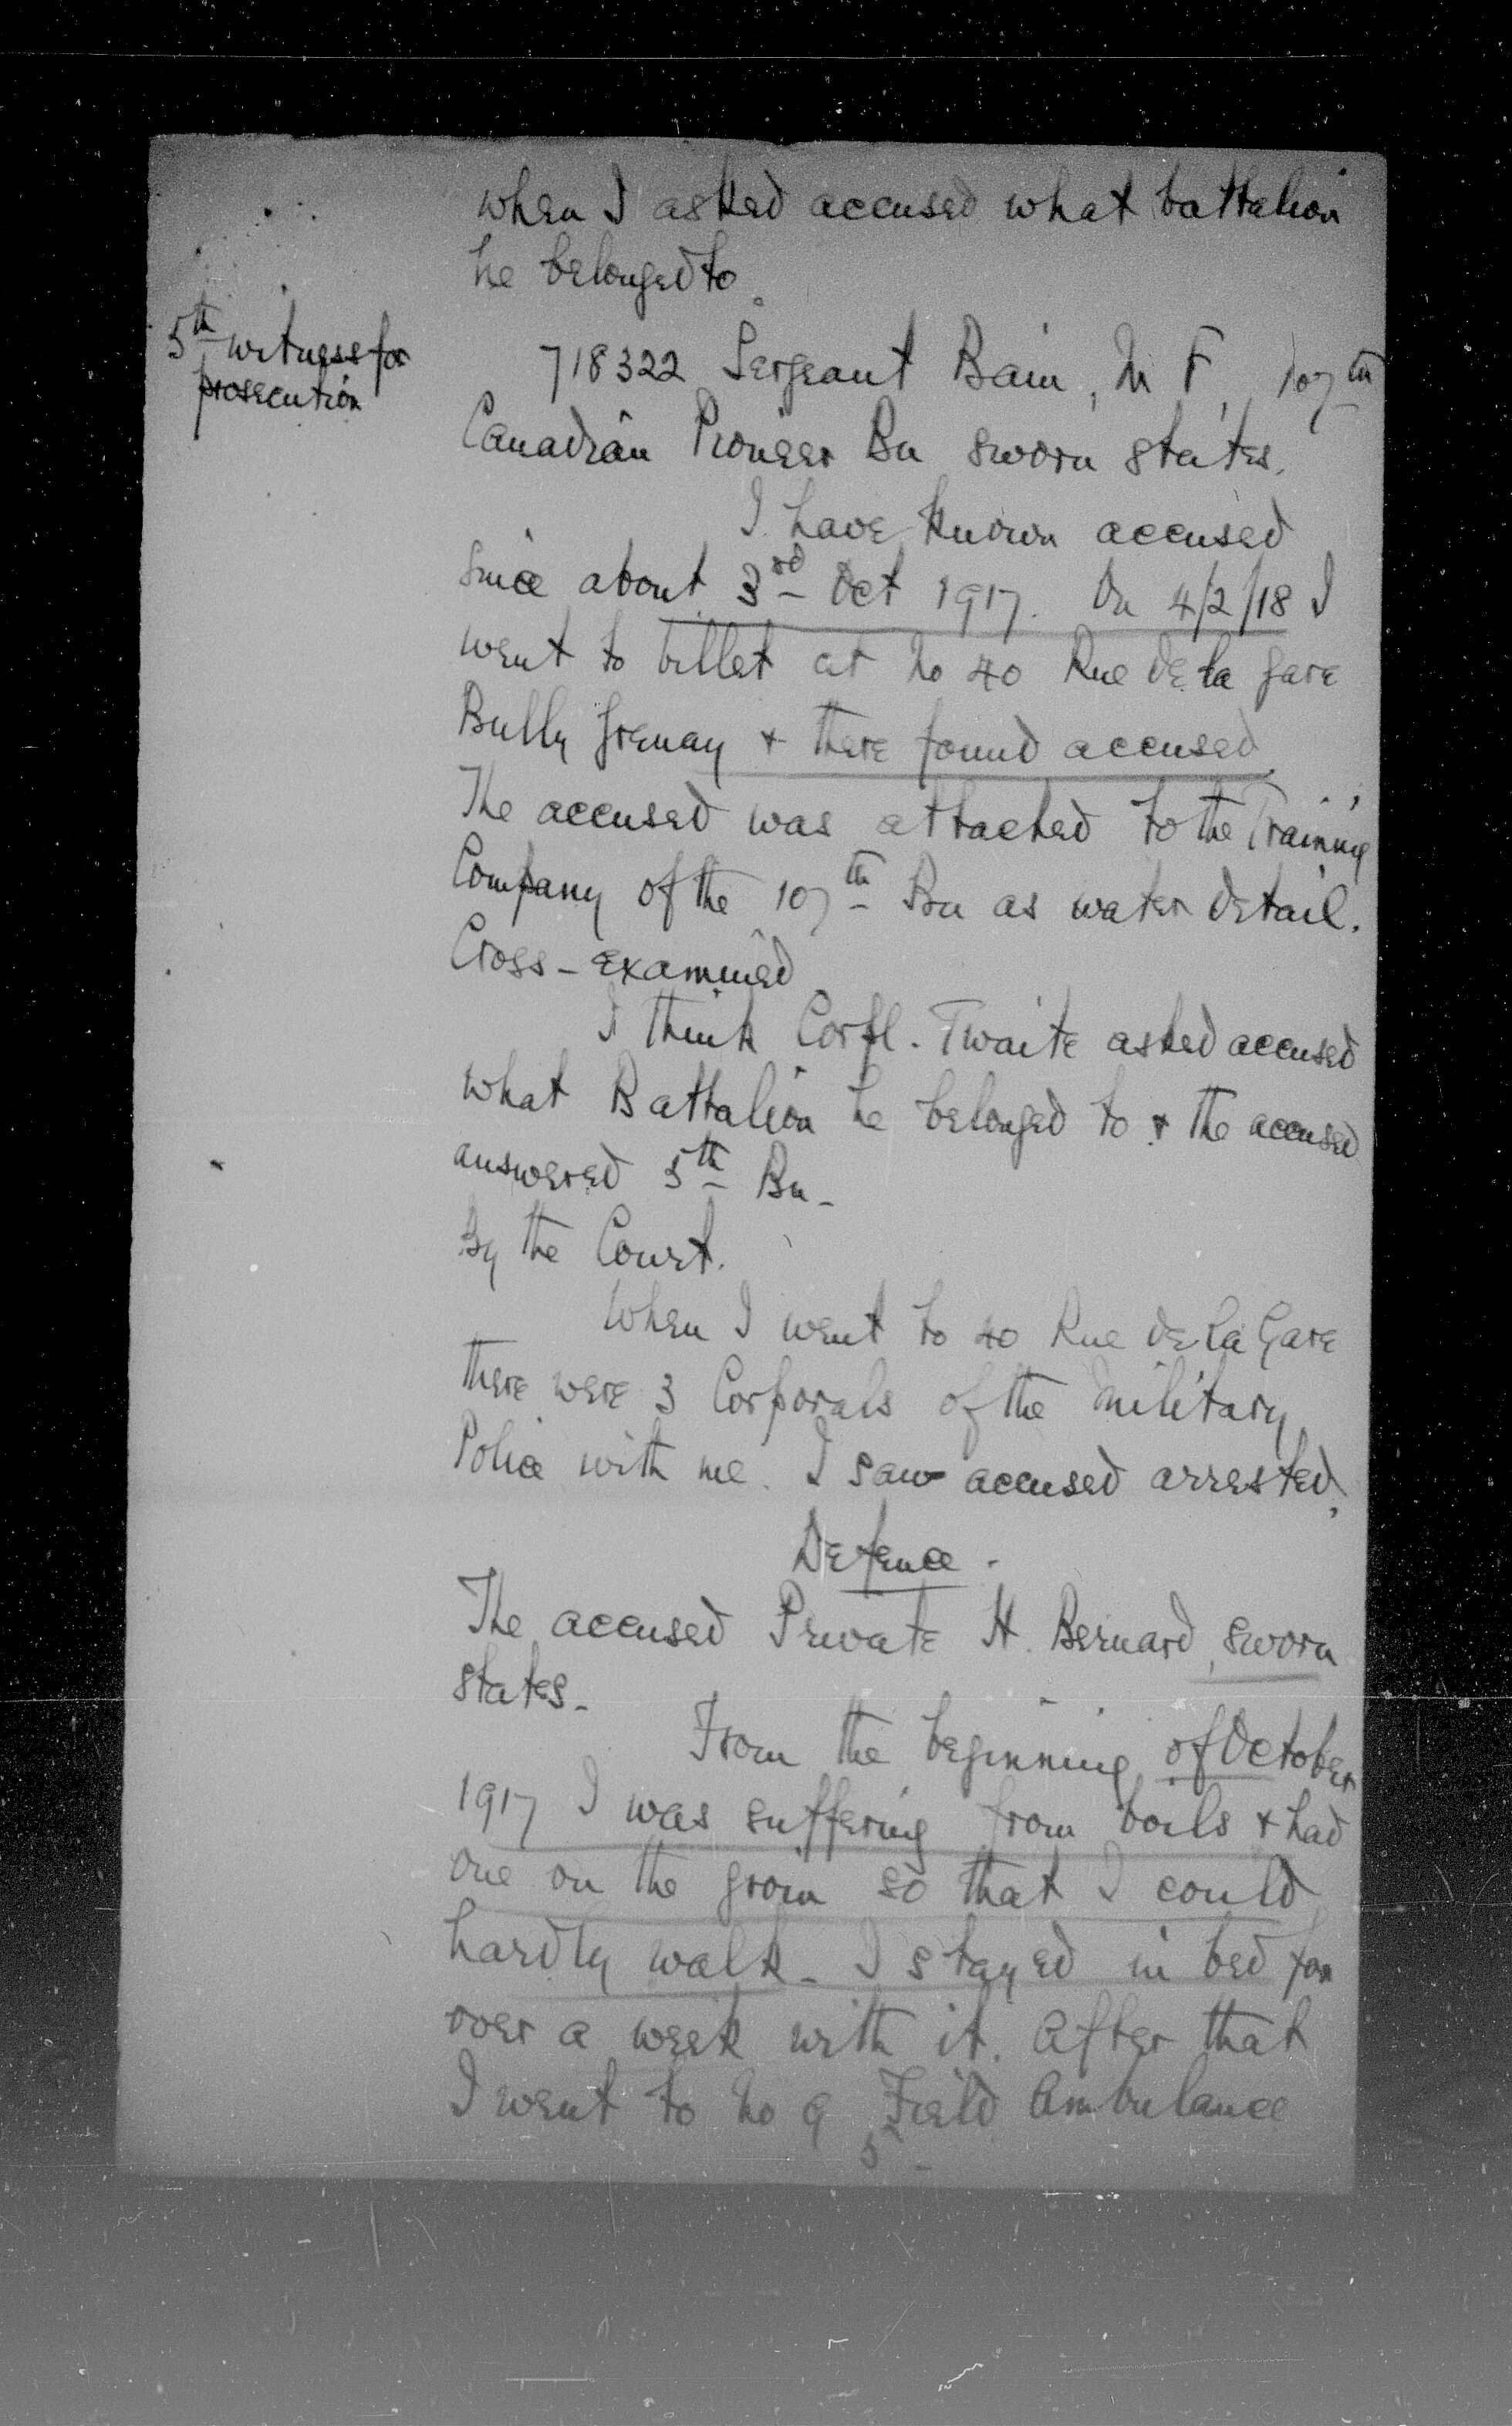 when I asked accused what battalion
he belonged to.
5th witness for
prosecution
718322 Sergeant Bain, N F, 107th
Canadian Pioneer Bn sworn states.
I have known accused
since about 3rd Oct 1917. On 4/2/18 I
went to billet at No 40 Rue de la Gare
Bully Grenay & there found accused.
The accused was attached to the Training
Company of the 107th Bn as water detail.
Cross-examined
I think Corpl. Twaite asked accused
what Battalion he belonged to & the accused
answered 5th Bn-
By the Court.
When I went to 40 Rue de la Gare
there were 3 Corporals of the Military
Police with me. I saw accused arrested.
Defence.
The accused Private H. Bernard, sworn
states-
From the beginning of October
1917 I was suffering from boils & had
one on the groin so that I could
hardly walk- I stayed in bed for
over a week with it. After that
I went to No 9 Field Ambulance
5-